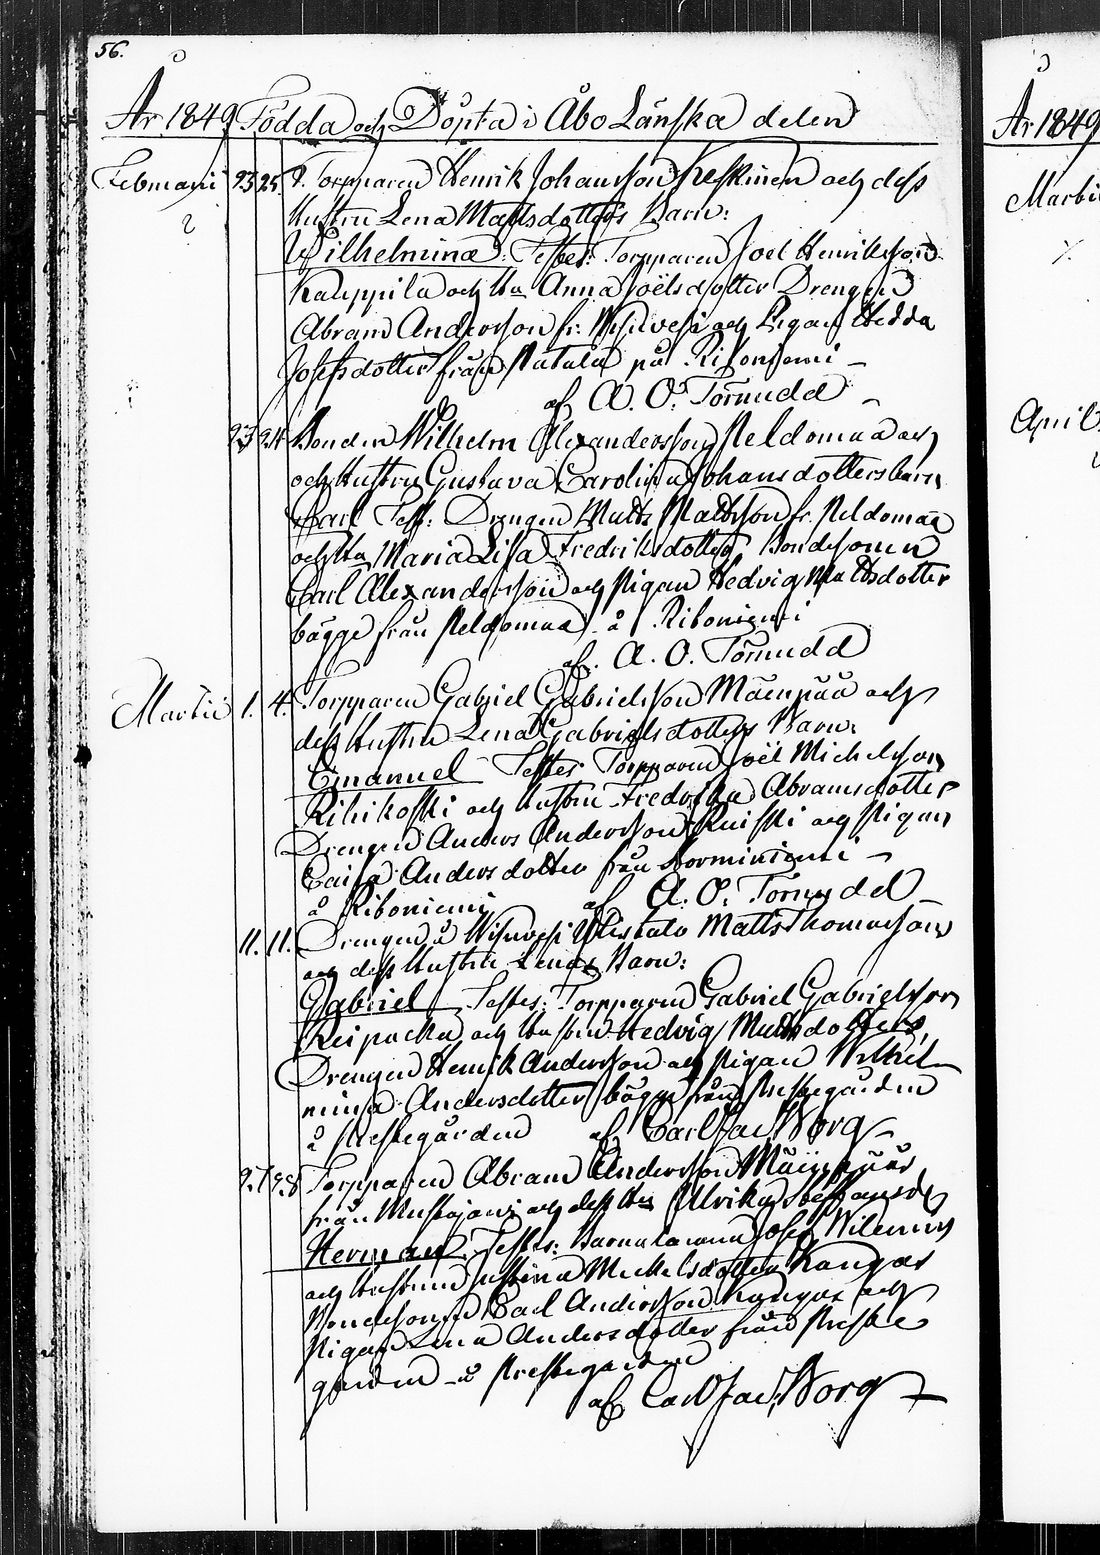 56.
År 1849 Födda och Döpta i Åbo Länska delen
År 1849
Februarii 23 25 T. Torpparen Henrik Johansson Keskinen och dess
Hustru Lena Mattsdotters Barn:
Wilhelmina: Testes: Torpparen Joel Henriksson
Kauppila och Hu Anna Joëlsdotter Drengen
Abram Andersson fr. och Pigan Hedda
Josefsdotter från på
af A. O. Törnudd
23 24 Bonden Wilhelm Alexandersson Peldomaa och
och Hustru Gustava Carolina Johansdotters barn
Carl Test: Drengen Matts Mattsson fr. Peldomaa
och Hu Maria Lisa Fredriksdotter, Bondesonen
Carl Alexandersson och Pigan Hedvig Mattsdotter
bägge från Peldomaa å Riboniemi
af. A. O. Törnudd
Martii 1. 4. Torpparen Gabriel Gabrielsson Mäenpää och
dess Hustru Lena Gabrielsdotters Barn:
Emanuel Testes: Torpparen Joël Michelsson
Rihikoski och Hustru Fredrika Abramsdotter
Drengen Anders Andersson och Pigan
Caisa Andersdotter från
å Riboniemi af A. O. Törnudd
11. 11. Drengen å Matts Thomasson
och dess Hustru Lenas Barn:
Gabriel Testes: Torpparen Gabriel Gabrielsson
och Hustru Hedvig Mattsdotter,
Drengen Henrik Andersson och Pigan Wilhel-
mina Andersdotter bägge från Prestegården
å Prestegården af. Carl Jac Borg
27 28 Torpparen Abram Andersson Mäenpää
från Mustajärvi och dess Hu Ulrika
Herman Testes: Josef Wilenius
och Hustru Justina Michelsdotter Kangas
Bondesonen Carl Andersson Kangas och
Pigan Lena Andersdotter från Preste
gården å Prestegården
af Carl Jac. Borg
Martii
April